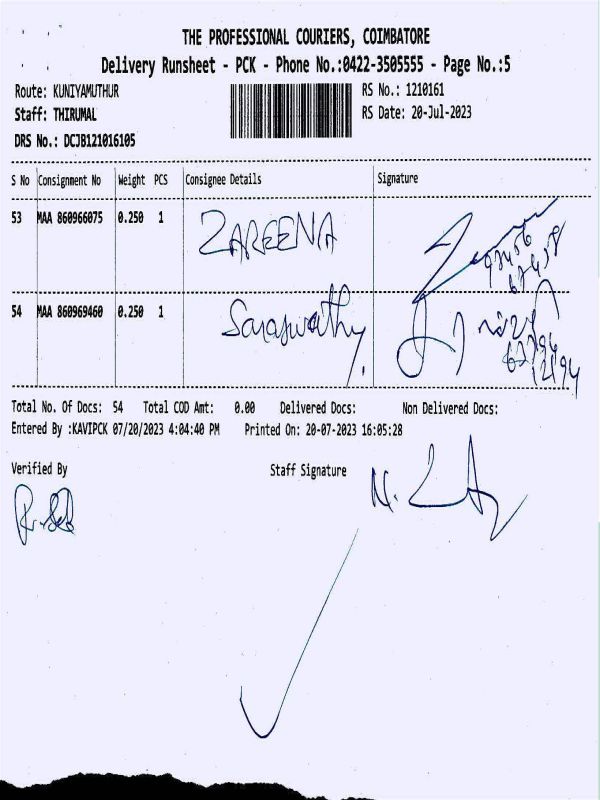 THE PROFESSIONAL COURIERS, COIMBATORE
Delivery Runsheet - PCK - Phone No.:0422-3505555 - Page No.:5
Route: KUNIYAMUTHUR RS No.: 1210161
Staff: THIRUMAL RS Date: 20-Jul-2023
DRS No.: DCJB121016105
S No Consignment No Weight PCS Consignee Details Signature
53 MAA 860966075 0.250 1 ZAREENA
54 MAA 860969460 0.250 1 Saraswathy
Total No. Of Docs: 54 Total COD Amt: 0.00 Delivered Docs: Non Delivered Docs:
Entered By :KAVIPCK 07/20/2023 4:04:40 PM Printed On: 20-07-2023 16:05:28
Verified By Staff Signature